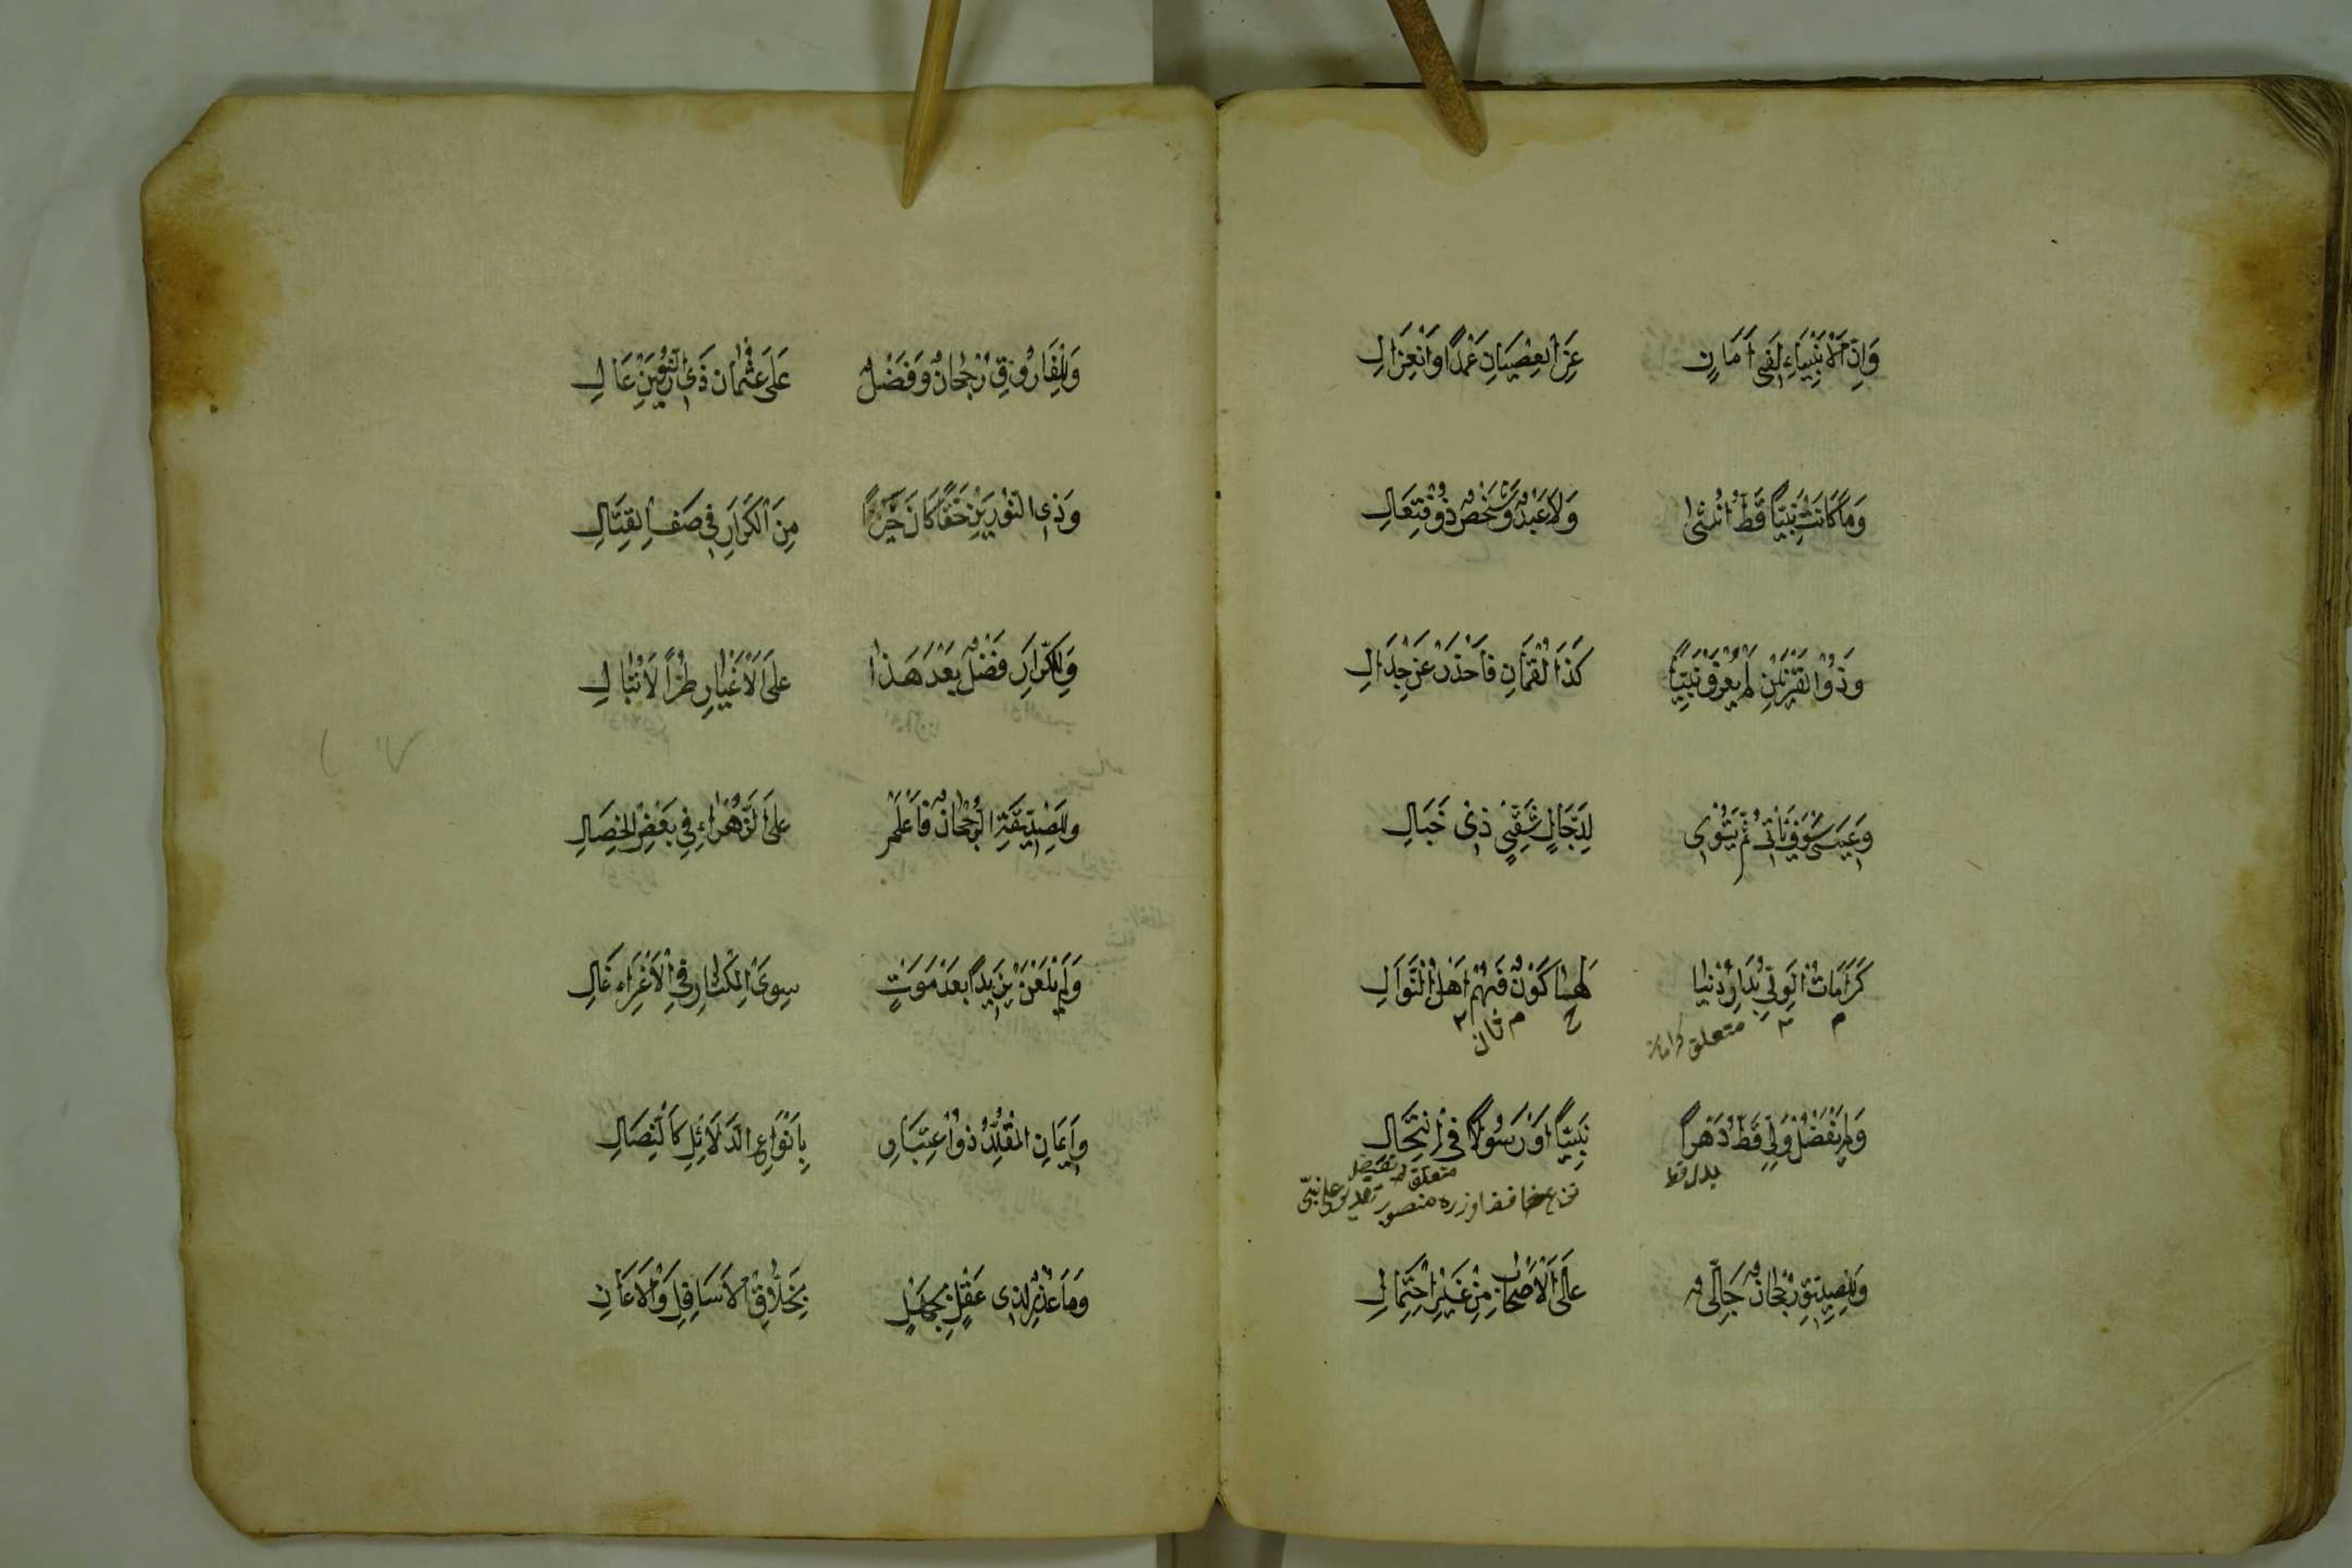 وَاِنَّ الْاَنْبِيَاءَ لَفِى اَمَانٍ عَنِ الْعِصْيَانِ عَمْدًا وَانْعِزَالِ
وَمَا كَانَتْ نَبِيًّا قَطُّ اُنْثٰى وَلَا عَبْدٌ وَشَخْصٌ ذُو فِتِعَالِ
وَذُو الْقَرْنَيْنِ لَمْ يُعْرَفْ نَبِيًّا كَذَا لُقْمَانُ فَاحْذَرْ عَنْ جِدَالِ
وَعِيسَى سَوْفَ يَاْتِى ثُمَّ يَتْوِى لِدَجَّالٍ شَقِىٍّ ذِى خَبَالِ
كَرَامَاتُ الْوَلِىِّ بِدَارِ دُنْيَا لَهَا كَوْنٌ فَهُمْ اَهْلُ النَّوَالِ
متعلق كرامات
ثان
وَلَمْ يَفْضُلْ وَلِىٌّ قَطُّ دَهْرًا نَبِيًّا اَوْ رَسُولًا فِى انْتِحَالِ
بدل قط
وَلِلصِّدِّيقِ رُجْحَانٌ جَلِىٌّ عَلَى الْاَصْحَابِ مِنْ غَيْرِ احْتِمَالِ
وَلِلْفَارُوقِ رُجْحَانٌ وَفَضْلٌ عَلَى عُثْمَانَ ذِى النُّورَيْنِ عَالِ
وَذِى النُّورَيْنِ حَقًّا كَانَ خَيْرًا مِنَ الْكَرَّارِ فِى صَفِّ الْقِتَالِ
وَلِلْكَرَّارِ فَضْلٌ بَعْدَ هَذَا عَلَى الْاَغْيَارِ طُرًّا لَا تُبَالِ
وَلِلصِّدِّيقَةِ الرُّجْحَانُ فَاعْلَمْ عَلَى الزَّهْرَاءِ فِى بَعْضِ الْخِصَالِ
وَلَمْ يَلْعَنْ يَزِيدًا بَعْدَ مَوْتٍ سِوَى الْمِكْثَارِ فِى الْاِغْرَاءِ غَالِ
وَاِيمَانُ الْمُقَلِّدِ ذُو اعْتِبَارٍ بِاَنْوَاعِ الدَّلَائِلِ كَالنِّصَالِ
وَمَا عُذْرٌ لِذِى عَقْلٍ بِجَهْلٍ بِخَلَّاقِ الْاَسَافِلِ وَالْاَعَالِ